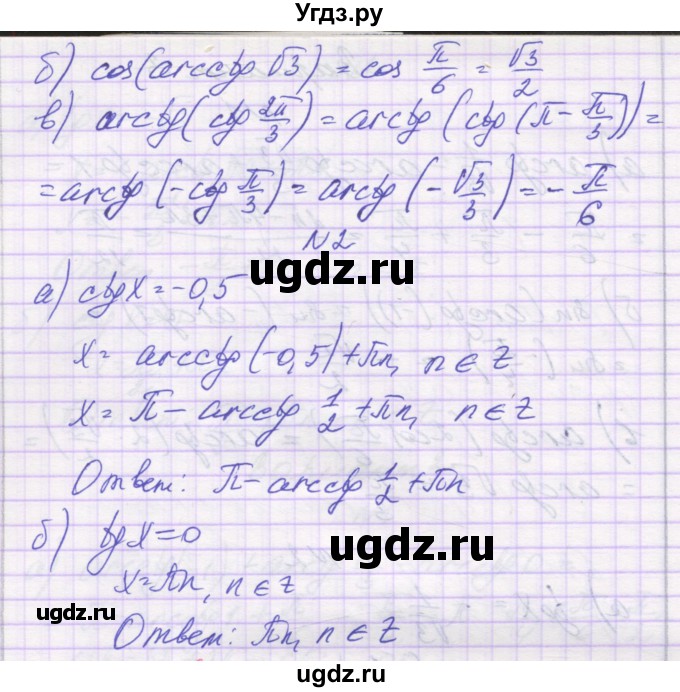 Угдз.ру
б) cos(arcctg √3) = cos π/6 = √3/2
в) arctg(ctg 2π/3) = arctg(ctg(π - π/3)) =
= arctg(-ctg π/3) = arctg(-√3/3) = -π/6
N2
ugdz.ru
а) ctgx = -0,5
x = arcctg(-0,5) + πn, n ∈ Z
x = π - arcctg 1/2 + πn, n ∈ Z
Ответ: π - arcctg 1/2 + πn
б) tgx = 0
ugdz.ru
x = πn, n ∈ Z
Ответ: πn, n ∈ Z
ugdz.ru